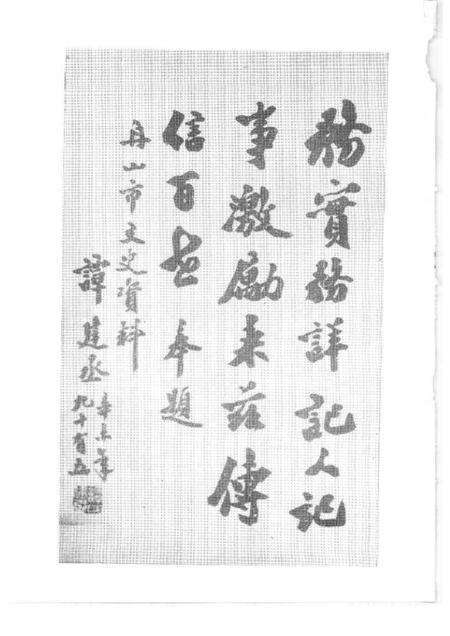 務實務詳記人記
事激勵来茲傳
信百世奉題
舟山市文史資料
譚建丞
辛未年
九十有五